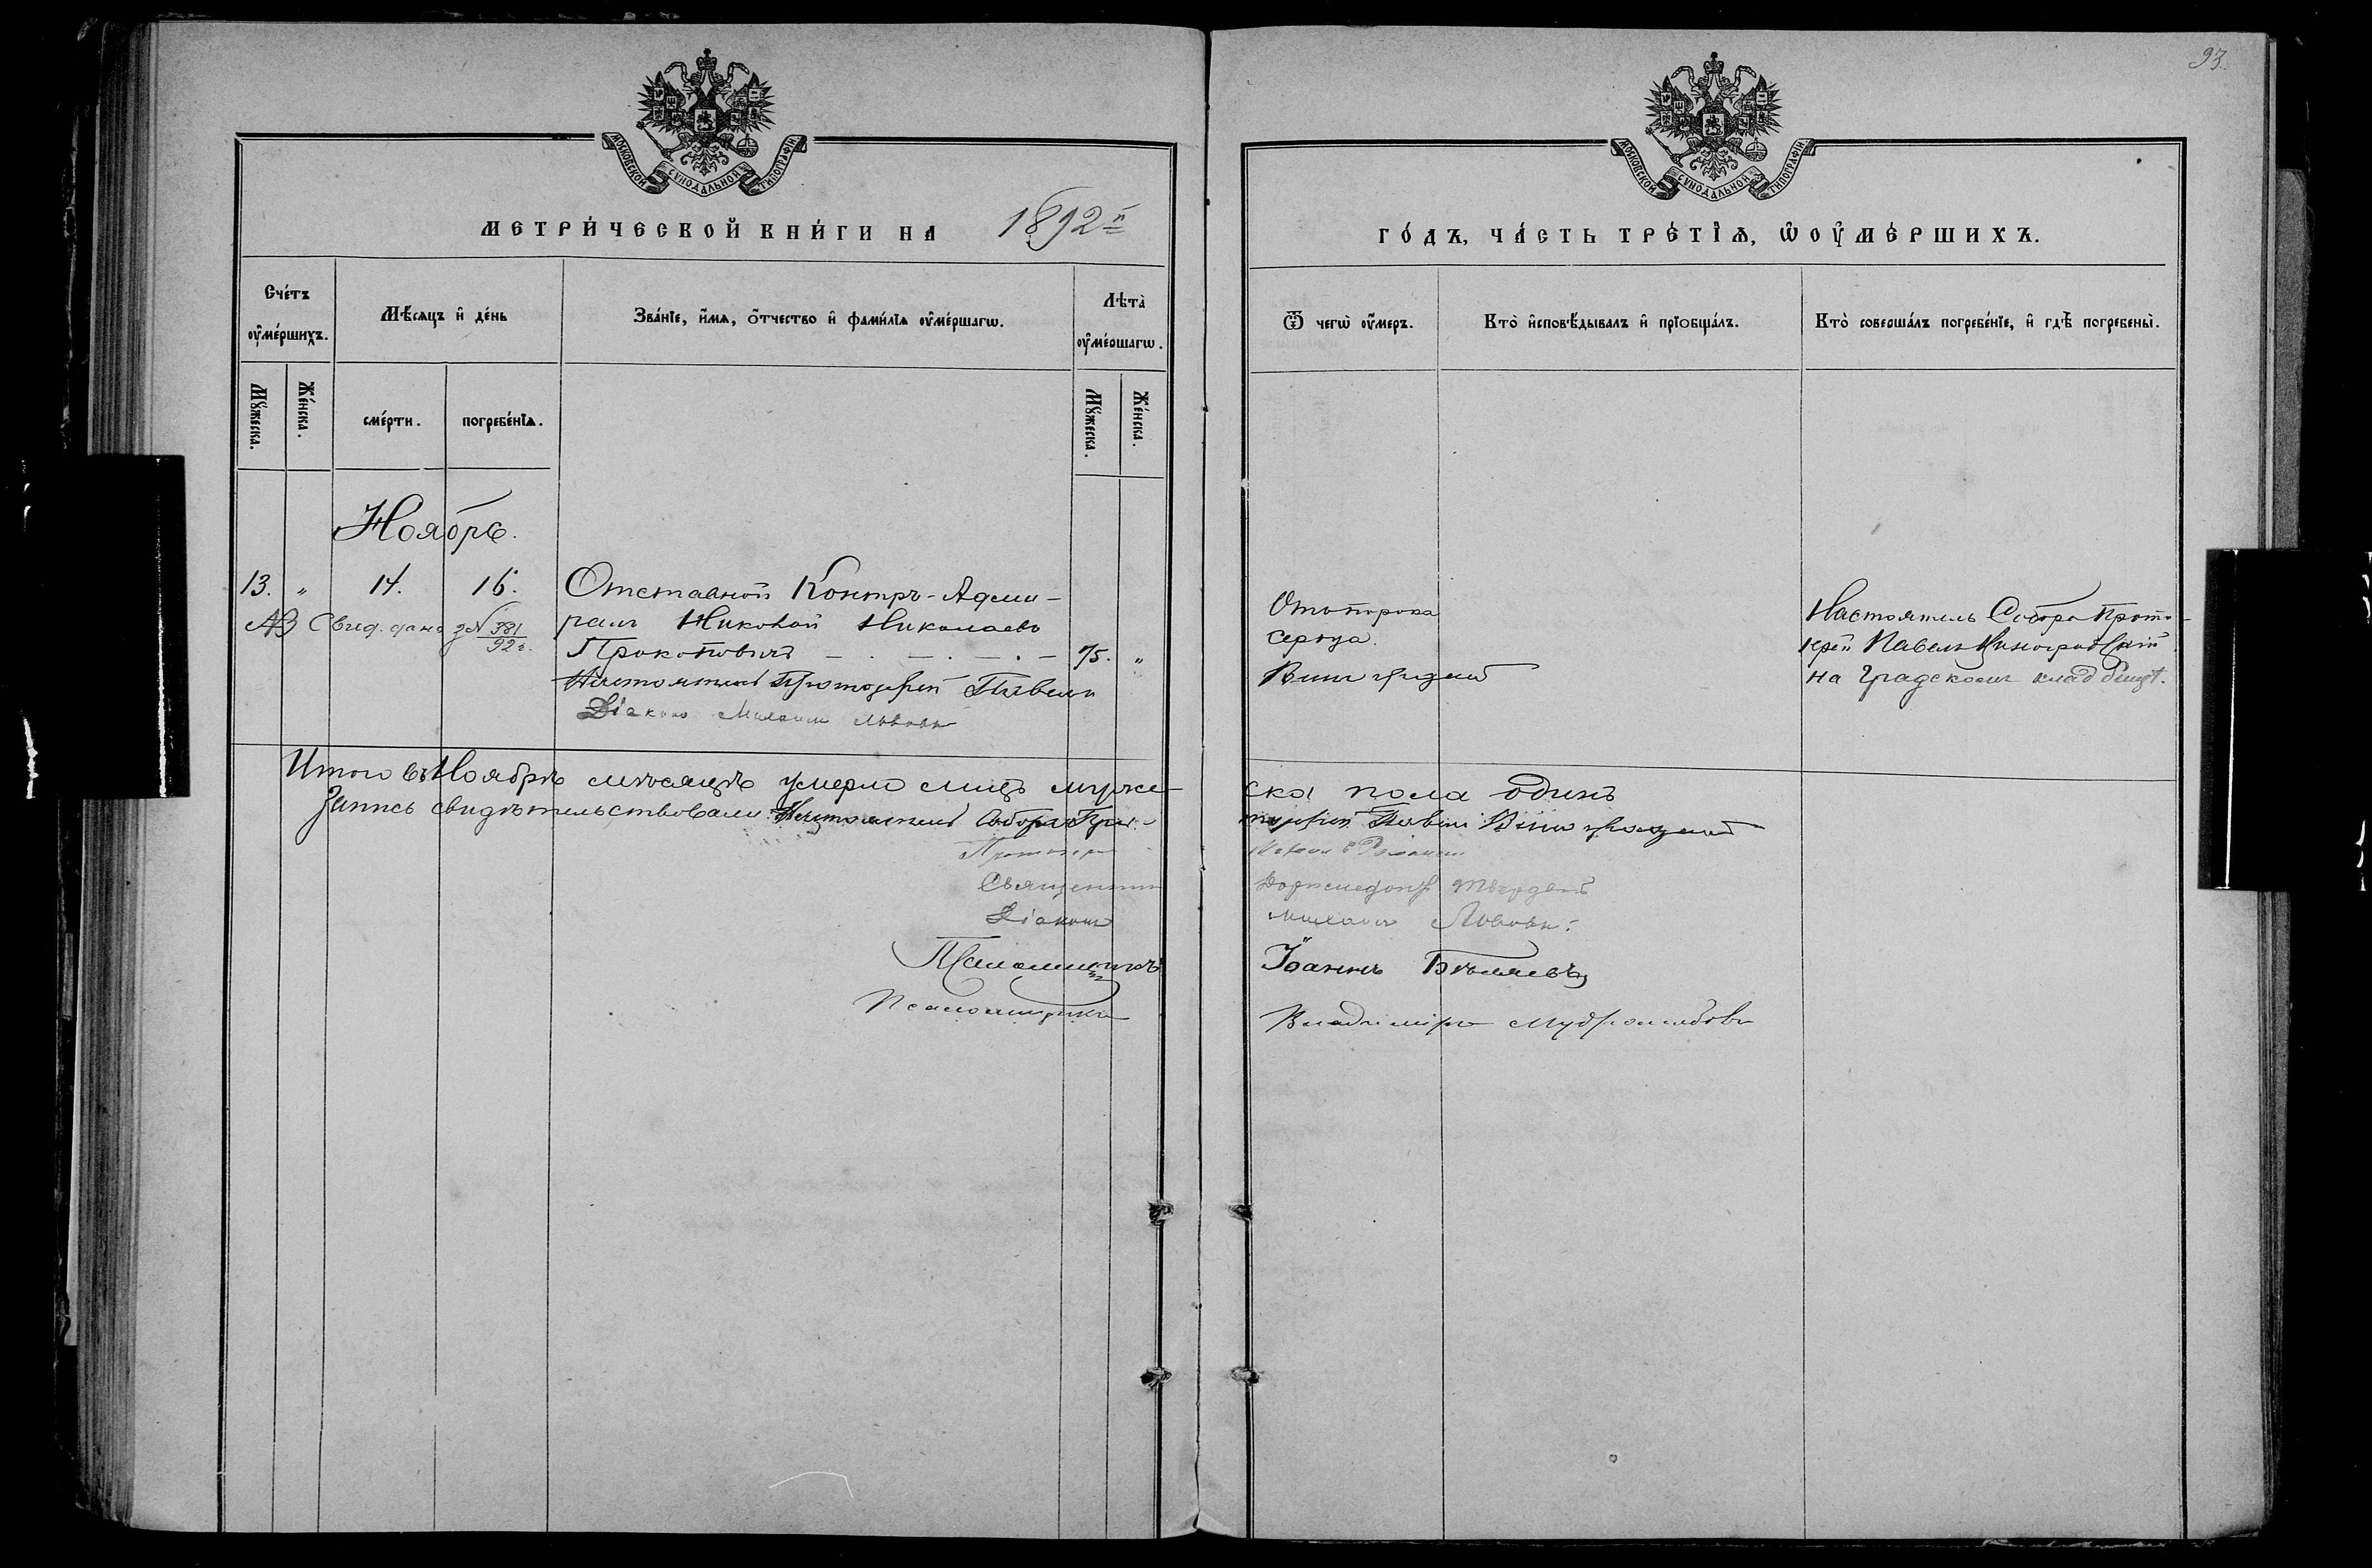 93.
МОСКОВСКОЙ СУНОДАЛЬНОЙ ТИПОГРАФІИ
МОСКОВСКОЙ СУНОДАЛЬНОЙ ТИПОГРАФІИ
МЕТРИ́ЧЕСКОЙ КНИ́ГИ НА 1892й
ГО́ДЪ, ЧА́СТЬ ТРЕ́ТІѦ, Ѡ ОУ҆МЕ́РШИХЪ.
Сче́тъ оу҆ме́ршихъ.
Мѣ́сяцъ и҆ де́нь
Зва́нїе, и҆́мѧ, ѻ҆́тчество и҆ фами́лїѧ оу҆ме́ршагѡ.
Лѣта̀ оу҆ме́ршагѡ.
Ѿ чегѡ̀ оу҆́меръ.
Кто̀ и҆сповѣ́дывалъ и҆ прїобща́лъ.
Кто̀ соверша́лъ погребе́нїе, и҆ гдѣ̀ погребены̀.
Мꙋ́жеска.
Же́нска.
сме́рти.
погребе́нїѧ.
Мꙋ́жеска.
Же́нска.
Ноябрь.
13. " 14. 16. Отставной Контръ-Адми-
Свид. дано з N 381/92 г. ралъ Николай Николаевъ
Прокоповичъ 75. "
Настоятель Протоіерей Павелъ
Діаконъ Михаилъ Львовъ
Отъ порока
сердца.
Виноградовъ
Настоятель Собора Прото-
іерей Павелъ
на Градскомъ кладбищѣ.
Итого въ Ноябрѣ мѣсяцѣ умерло лицъ муже-
ска пола одинъ
Запись свидѣтельствовали: Настоятель Собора Про-
тоіерей Павелъ Виноградовъ
Протоіерей
Священникъ
Діаконъ Михаилъ Львовъ.
Псаломщикъ Іоаннъ Бѣляевъ
Псаломщикъ Владиміръ Мудролюбовъ